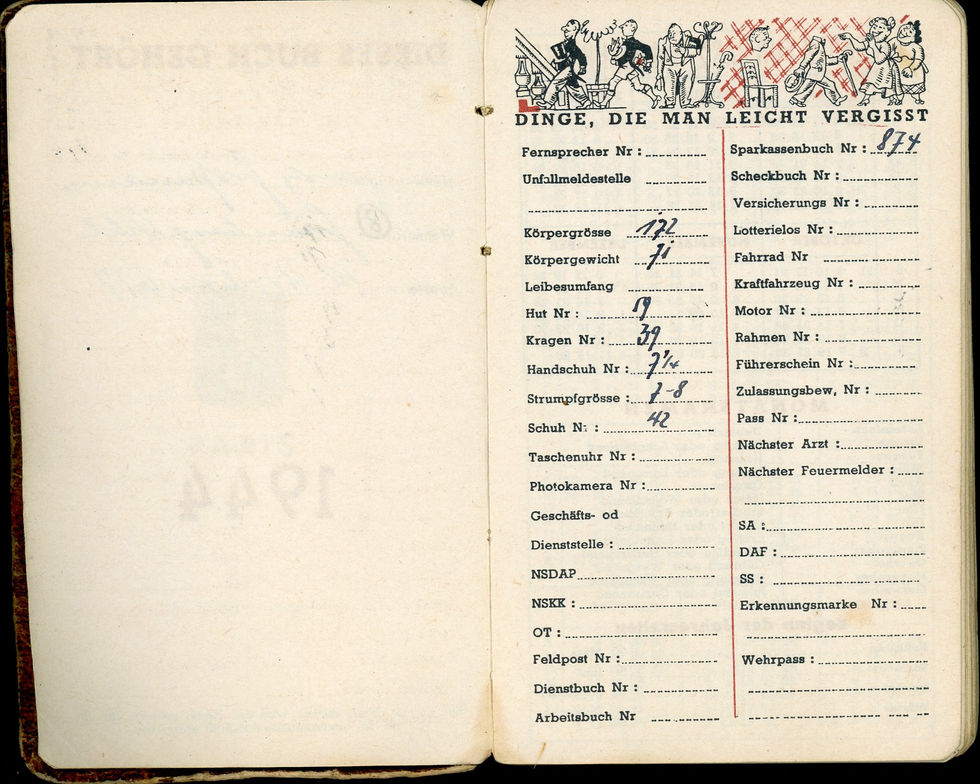 DINGE, DIE MAN LEICHT VERGISST
Fernsprecher Nr :
Unfallmeldestelle
Körpergrösse 172
Körpergewicht 71
Leibesumfang
Hut Nr : 59
Kragen Nr : 39
Handschuh Nr : 7 1/4
Strumpfgrösse : 7-8
Schuh Nr : 42
Taschenuhr Nr :
Photokamera Nr :
Geschäfts- od
Dienststelle :
NSDAP
NSKK :
OT :
Feldpost Nr :
Dienstbuch Nr :
Arbeitsbuch Nr
Sparkassenbuch Nr : 874
Scheckbuch Nr :
Versicherungs Nr :
Lotterielos Nr :
Fahrrad Nr
Kraftfahrzeug Nr :
Motor Nr :
Rahmen Nr :
Führerschein Nr :
Zulassungsbew, Nr :
Pass Nr :
Nächster Arzt :
Nächster Feuermelder :
SA :
DAF :
SS :
Erkennungsmarke Nr :
Wehrpass :